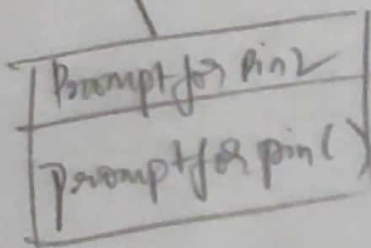 Prompt for Pin2
Prompt for pin()